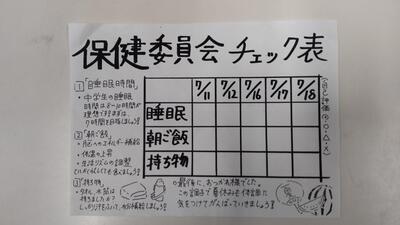 保健委員会チェック表
①「睡眠時間」
・中学生の睡眠
時間は8~10時間が
理想ですがまずは
7時間を目指しましょう
②「朝ご飯」
・脳へのエネルギー補給
・体温の上昇
・生活リズムの調整
③「持ち物」
・タオル、水筒は
持ちましたか?
7/11 7/12 7/16 7/17 7/18
睡眠
朝ご飯
持ち物
◎最後に、おつかれ様でした。
この調子で夏休みも体調に
気をつけてがんばっていきましょう